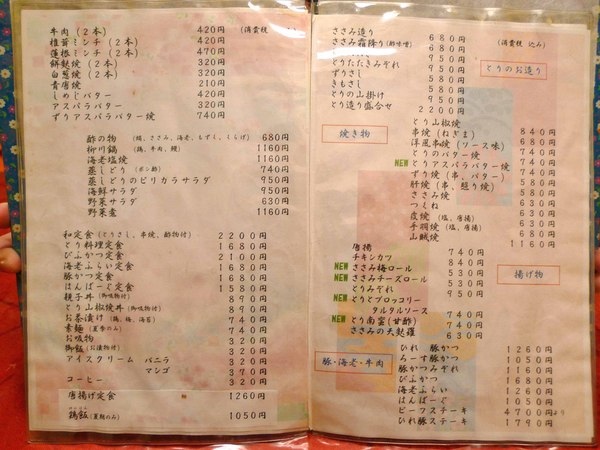 牛肉（２本） 420円 （消費税
椎茸ミンチ（２本） 420円
蓮根ミンチ（２本） 470円
餅麩焼（２本） 320円
白葱焼（２本） 320円
青唐焼 210円
しめじバター 420円
アスパラバター 320円
ずりアスパラバター焼 740円
酢の物（鶏、ささみ、海老、もずく、くらげ） 680円
柳川鍋（鶏、牛肉、鰻） 1160円
海老塩焼 1160円
蒸しどり（ポン酢） 740円
蒸しどりのピリカラサラダ 950円
海鮮サラダ 950円
野菜サラダ 630円
野菜煮 1160円
和定食（とりさし、串焼、酢物付） 2200円
とり料理定食 1680円
びふかつ定食 2100円
海老ふらい定食 1680円
豚かつ定食 1680円
はんばーぐ定食 1580円
親子丼（御吸物付） 890円
とり山椒焼丼（御吸物付） 890円
お茶漬け（鶏、梅、海苔） 740円
素麺（夏季のみ） 740円
お吸物 320円
御飯（お漬物付） 320円
アイスクリーム バニラ 320円
マンゴ 370円
コーヒー 320円
唐揚げ定食 1260円
とりめし
鶏飯（夏期のみ） 1050円
ささみ造り 680円 （消費税 込み）
ささみ霜降り（酢味噌） 680円
950円
とりたたきみぞれ 950円
ずりさし 580円
きもさし 580円
とりの山掛け 950円
とり造り盛合せ 2200円
とりのお造り
焼き物
とり山椒焼 840円
串焼（ねぎま） 740円
洋風串焼（ソース味） 680円
とりのバター焼 740円
NEW とりアスパラバター焼 740円
ずり焼（串、バター） 740円
肝焼（串、照り焼） 580円
ささみ焼 580円
つくね 530円
皮焼（塩、唐揚） 630円
手羽焼（塩、唐揚） 680円
山賊焼 1160円
揚げ物
唐揚 740円
チキンカツ 840円
NEW ささみ梅ロール 530円
NEW ささみチーズロール 530円
とりみぞれ 950円
NEW とりとブロッコリー
タルタルソース 740円
NEW とり南蛮（甘酢） 740円
ささみの天麩羅 630円
豚・海老・牛肉
ひれ豚かつ 1260円
ろーす豚かつ 1050円
豚かつみぞれ 1160円
びふかつ 1680円
海老ふらい 1260円
はんばーぐ 1050円
ビーフステーキ 4700円より
ひれ豚ステーキ 1790円